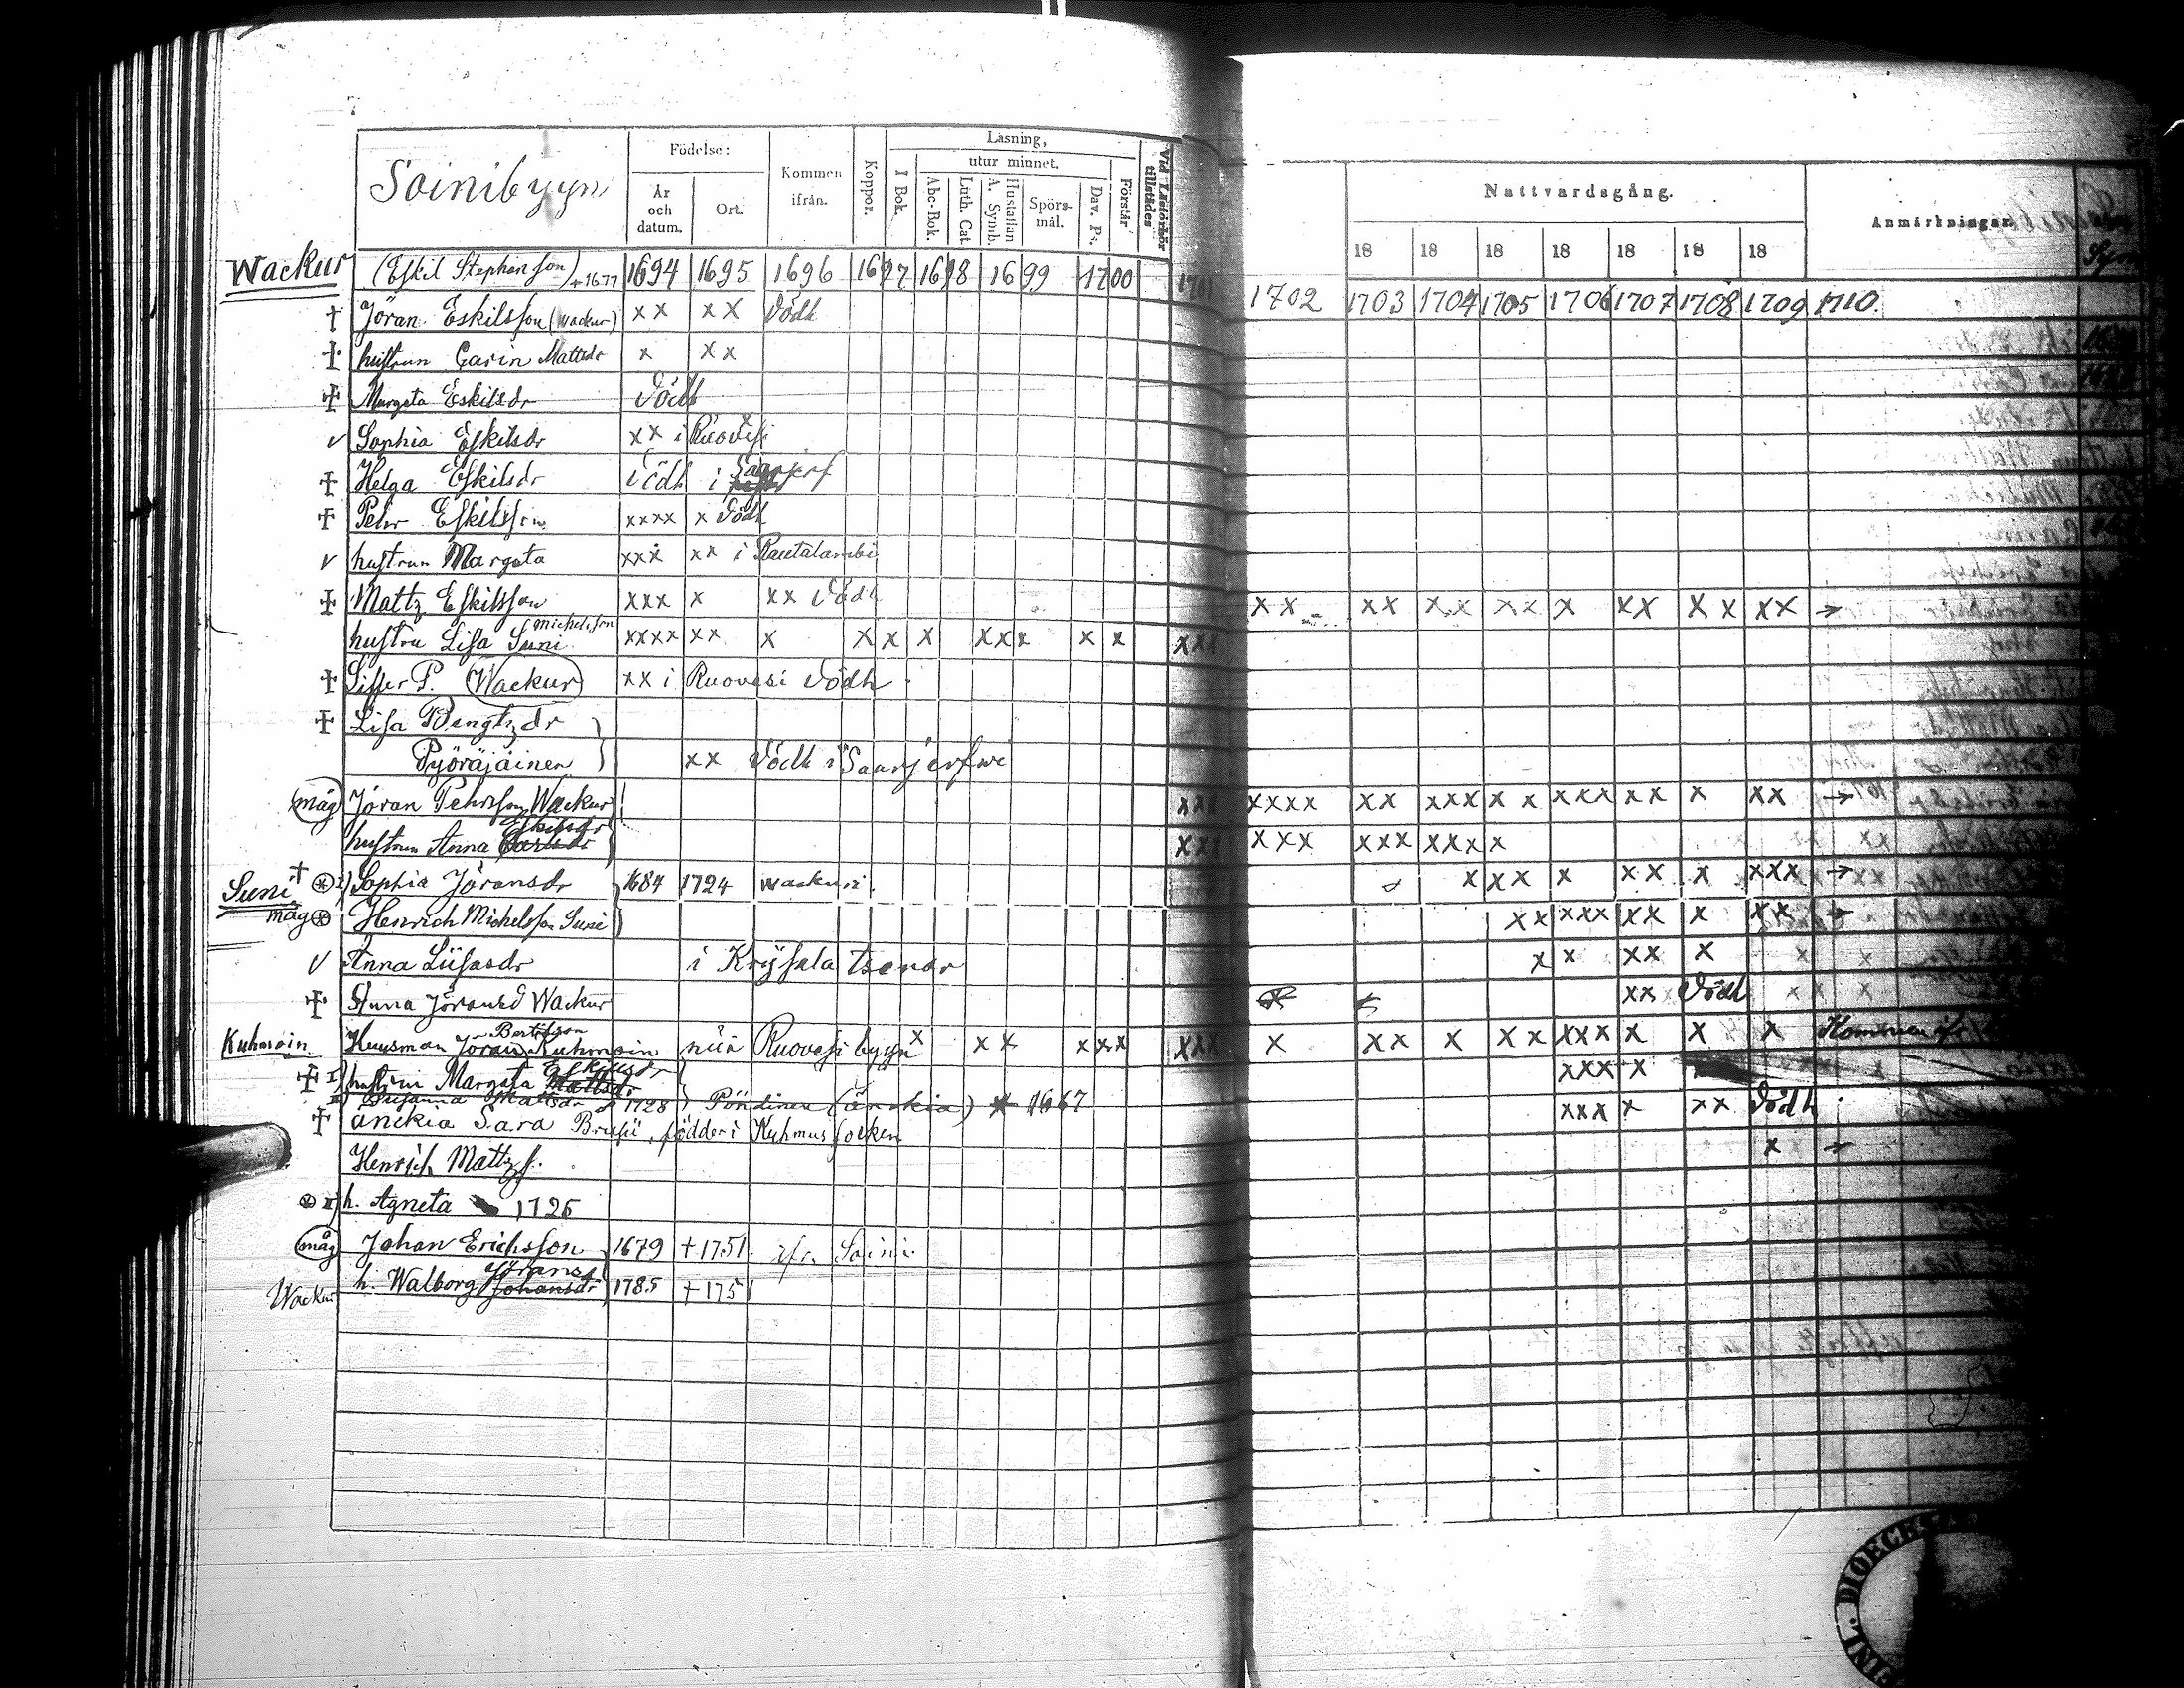 Soinibyyn
Födelse:
År och datum.
Ort.
Kommen ifrån.
Koppor.
Läsning,
I Bok.
utur minnet.
Abc-Bok.
Luth. Cat.
Hustaflan A. Symb.
Spörs- mål.
Dav. Ps.
Förstår
Vid Läsförhör tillstädes
Nattvardsgång.
18 18 18 18 18 18 18
Anmärkningar.
Wackur (Eskil Stephensson) + 1677 1694 1695 1696 1697 1698 1699 1700 1701 1702 1703 1704 1705 1706 1707 1708 1709 1710.
† Jöran Eskilsson (Wackur) xx xx dödh
† hustrun Carin Mattsdr x xx
† Margeta Eskilsdr dödh
v Sophia Eskilsdr xx i Ruovesi x
† Helga Eskilsdr dödh i Saarjerf
† Peter Eskilsson xxxx x dödh
v hustrun Margeta xxx xx i Rautalambi
† Mattz Eskilsson xxx x xx dödh xx xx xx xx x xx xx xx →
hustru Lisa Michelsson Suni xxxx xx x xx x xxx x x xxx
† Siffer P. (Wackur) xx i Ruovesi dödh
† Lisa Bengtzdr
Pyöräjäinen xx dödh i Saarjerfwi
(måg) Jöran Pehrsson Wackur xxx xxxx xx xxx x x xxx xx x xx →
hustrun Anna Eskilsdr xxx xxx xxx xxx x
Suni † Sophia Jöransdr 1684 1724 Wackuri. x xx x xx x xxx →
måg Henrich Michelsson Suni xx xxx xx x xx →
v Anna Lüsasdr i Krijsala tienar x x xx x
† Anna Jöransd Wackur xx dödh
Kuhmoin Huusman Jöran Bertilsson Kuhmoin Ruovesi byyn x xx xxx xxx x xx x xx xxx x x x Kommen ifr
† I) hustrun Margeta xxx x
II) Susanna Mattsdr 1728 Pöndinen (änckia) 1667 xxx x xx dödh
† änckia Sara födder i Kuhmus socken x →
Henrich Mattzs.
II) h. Agneta 1726
(måg) Johan Erichsson 1679 + 1751 ifr. Soini
Wackur h. Walborg Jörans Johansdr 1785 + 1751
FINL. DIOECES